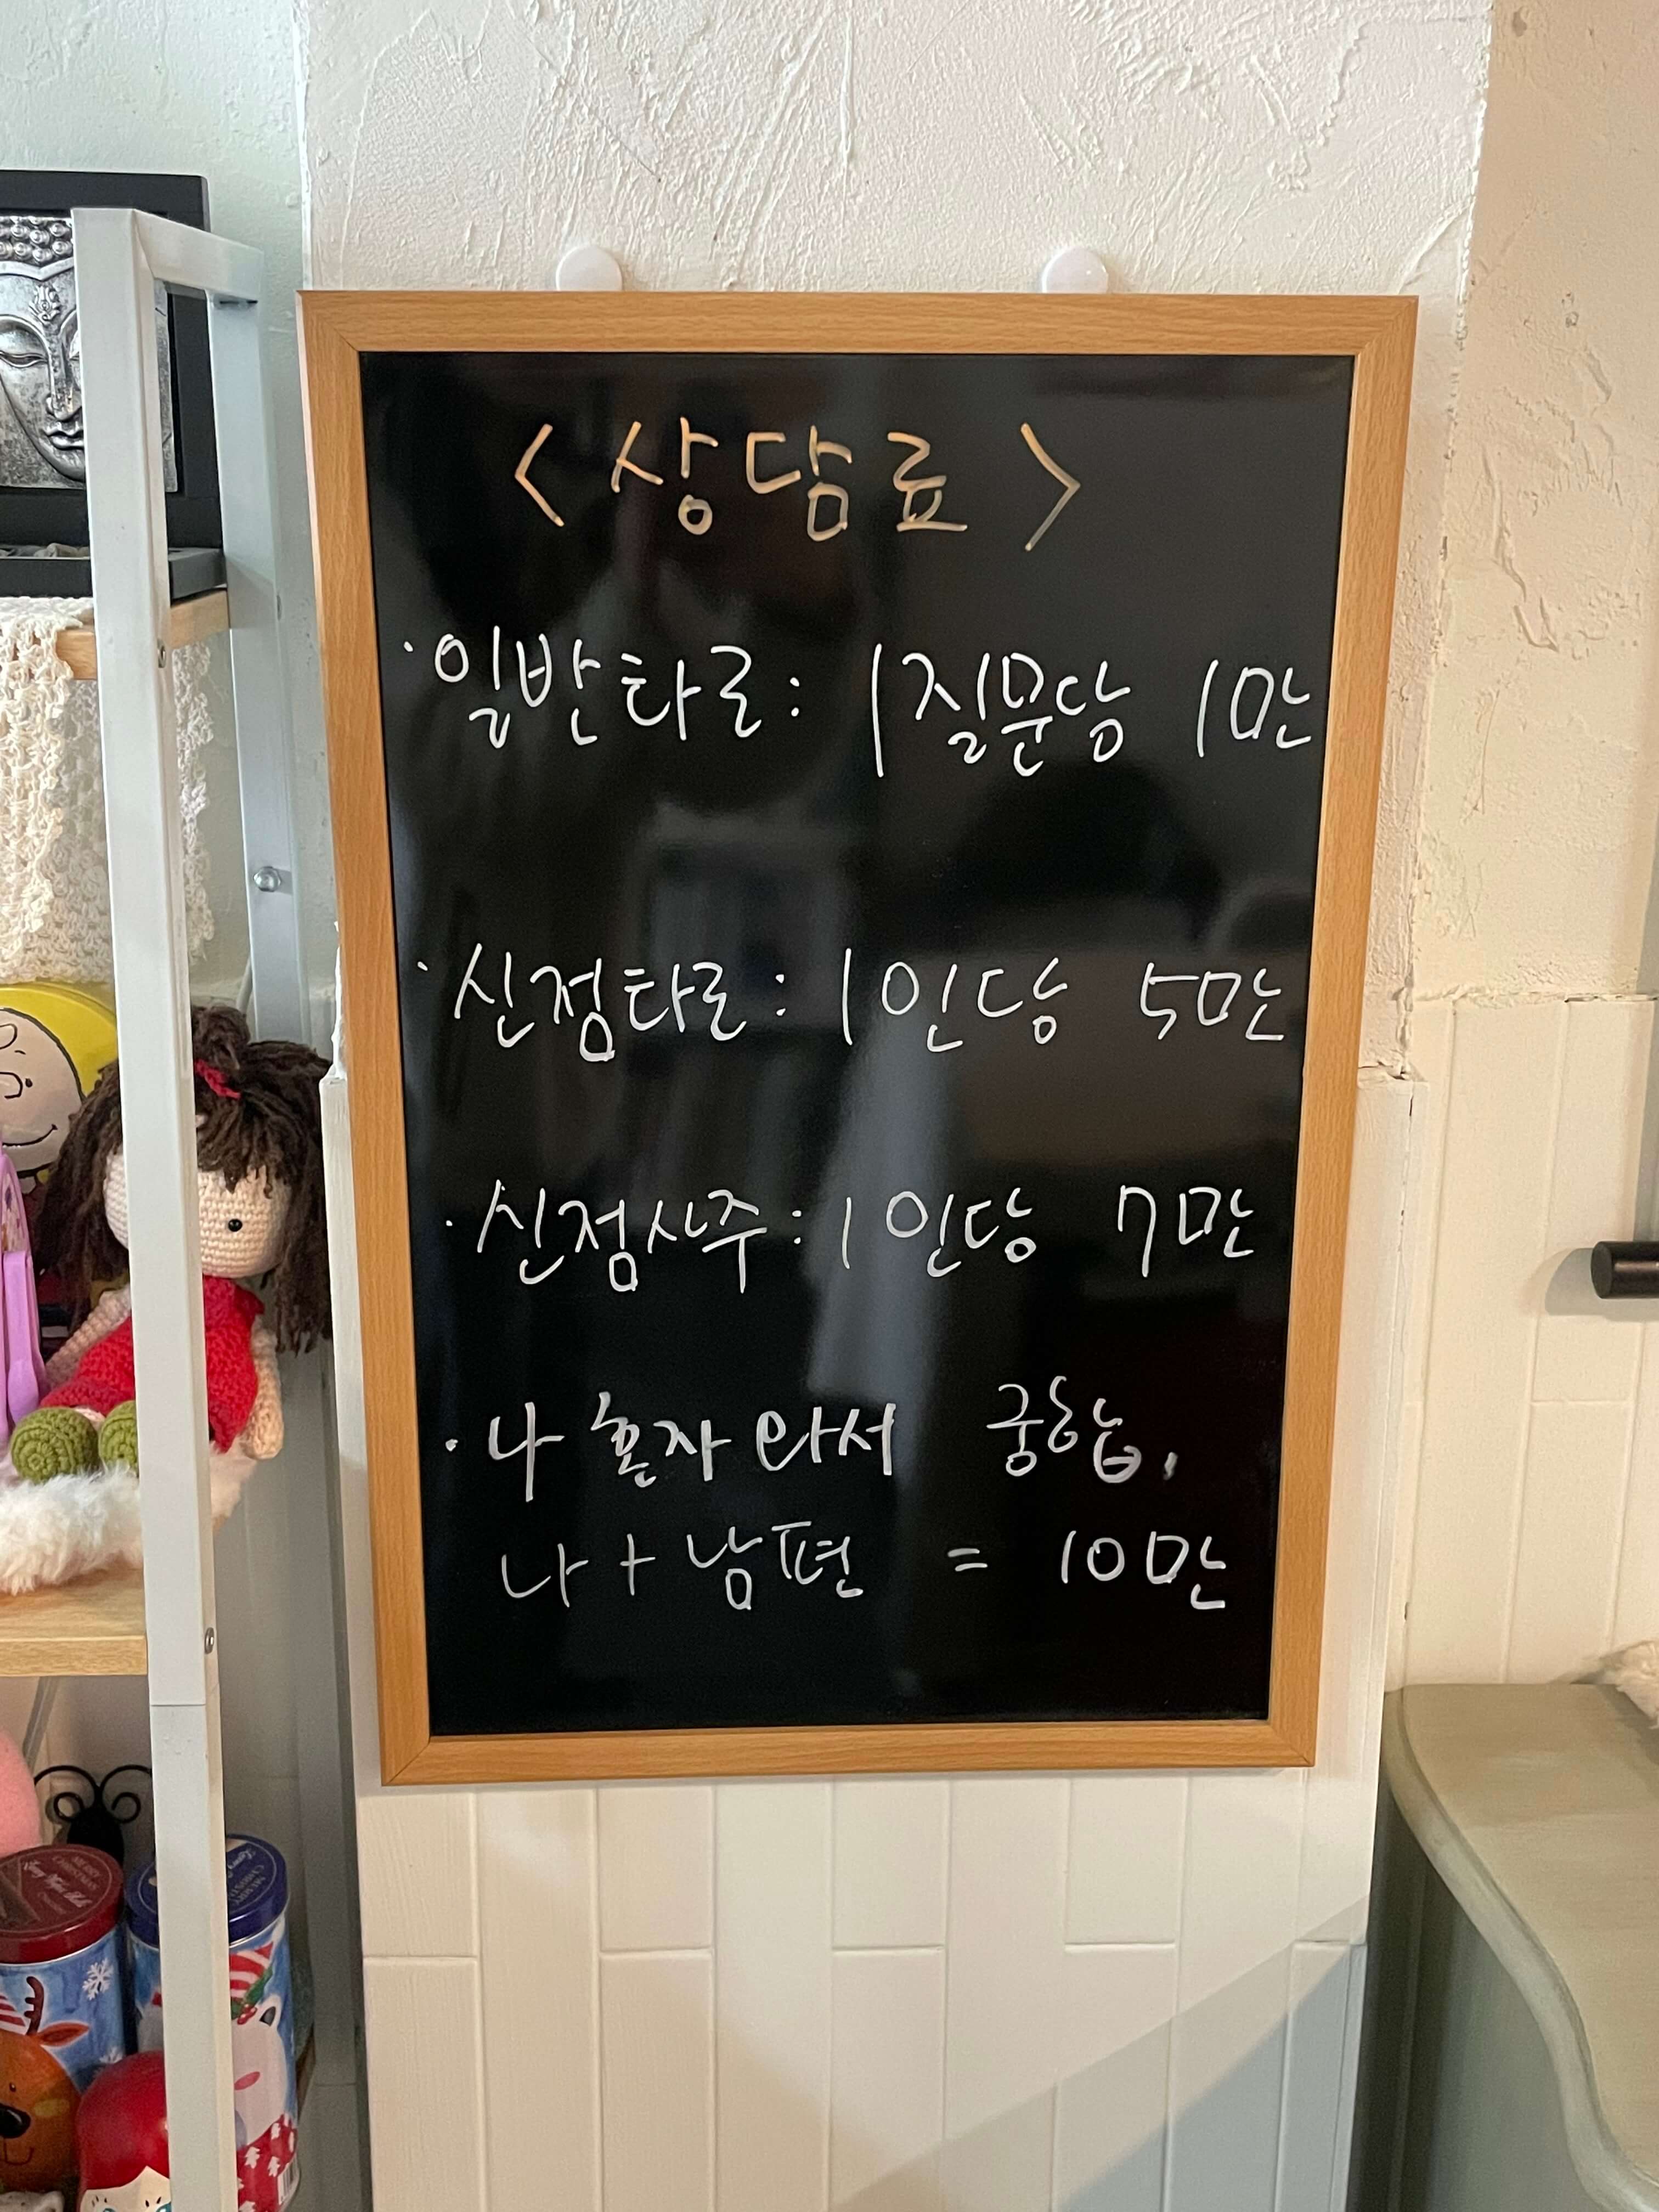 <상담료>
· 일반타로 : 1질문당 1만
· 신점타로 : 1인당 5만
· 신점사주 : 1인당 7만
· 나 혼자 와서 궁합,
나 + 남편 = 10만